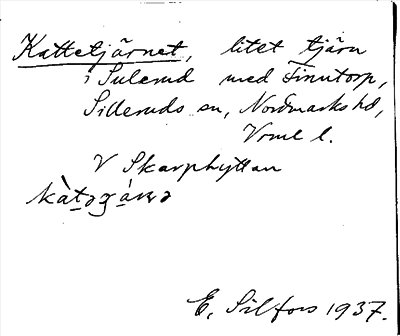 Kattetjärnet, litet tjärn
i Sulerud med Finntorp,
Silleruds sn, Nordmarks hd,
Vrml l.
V Skarphyttan
E. Silfors 1937.